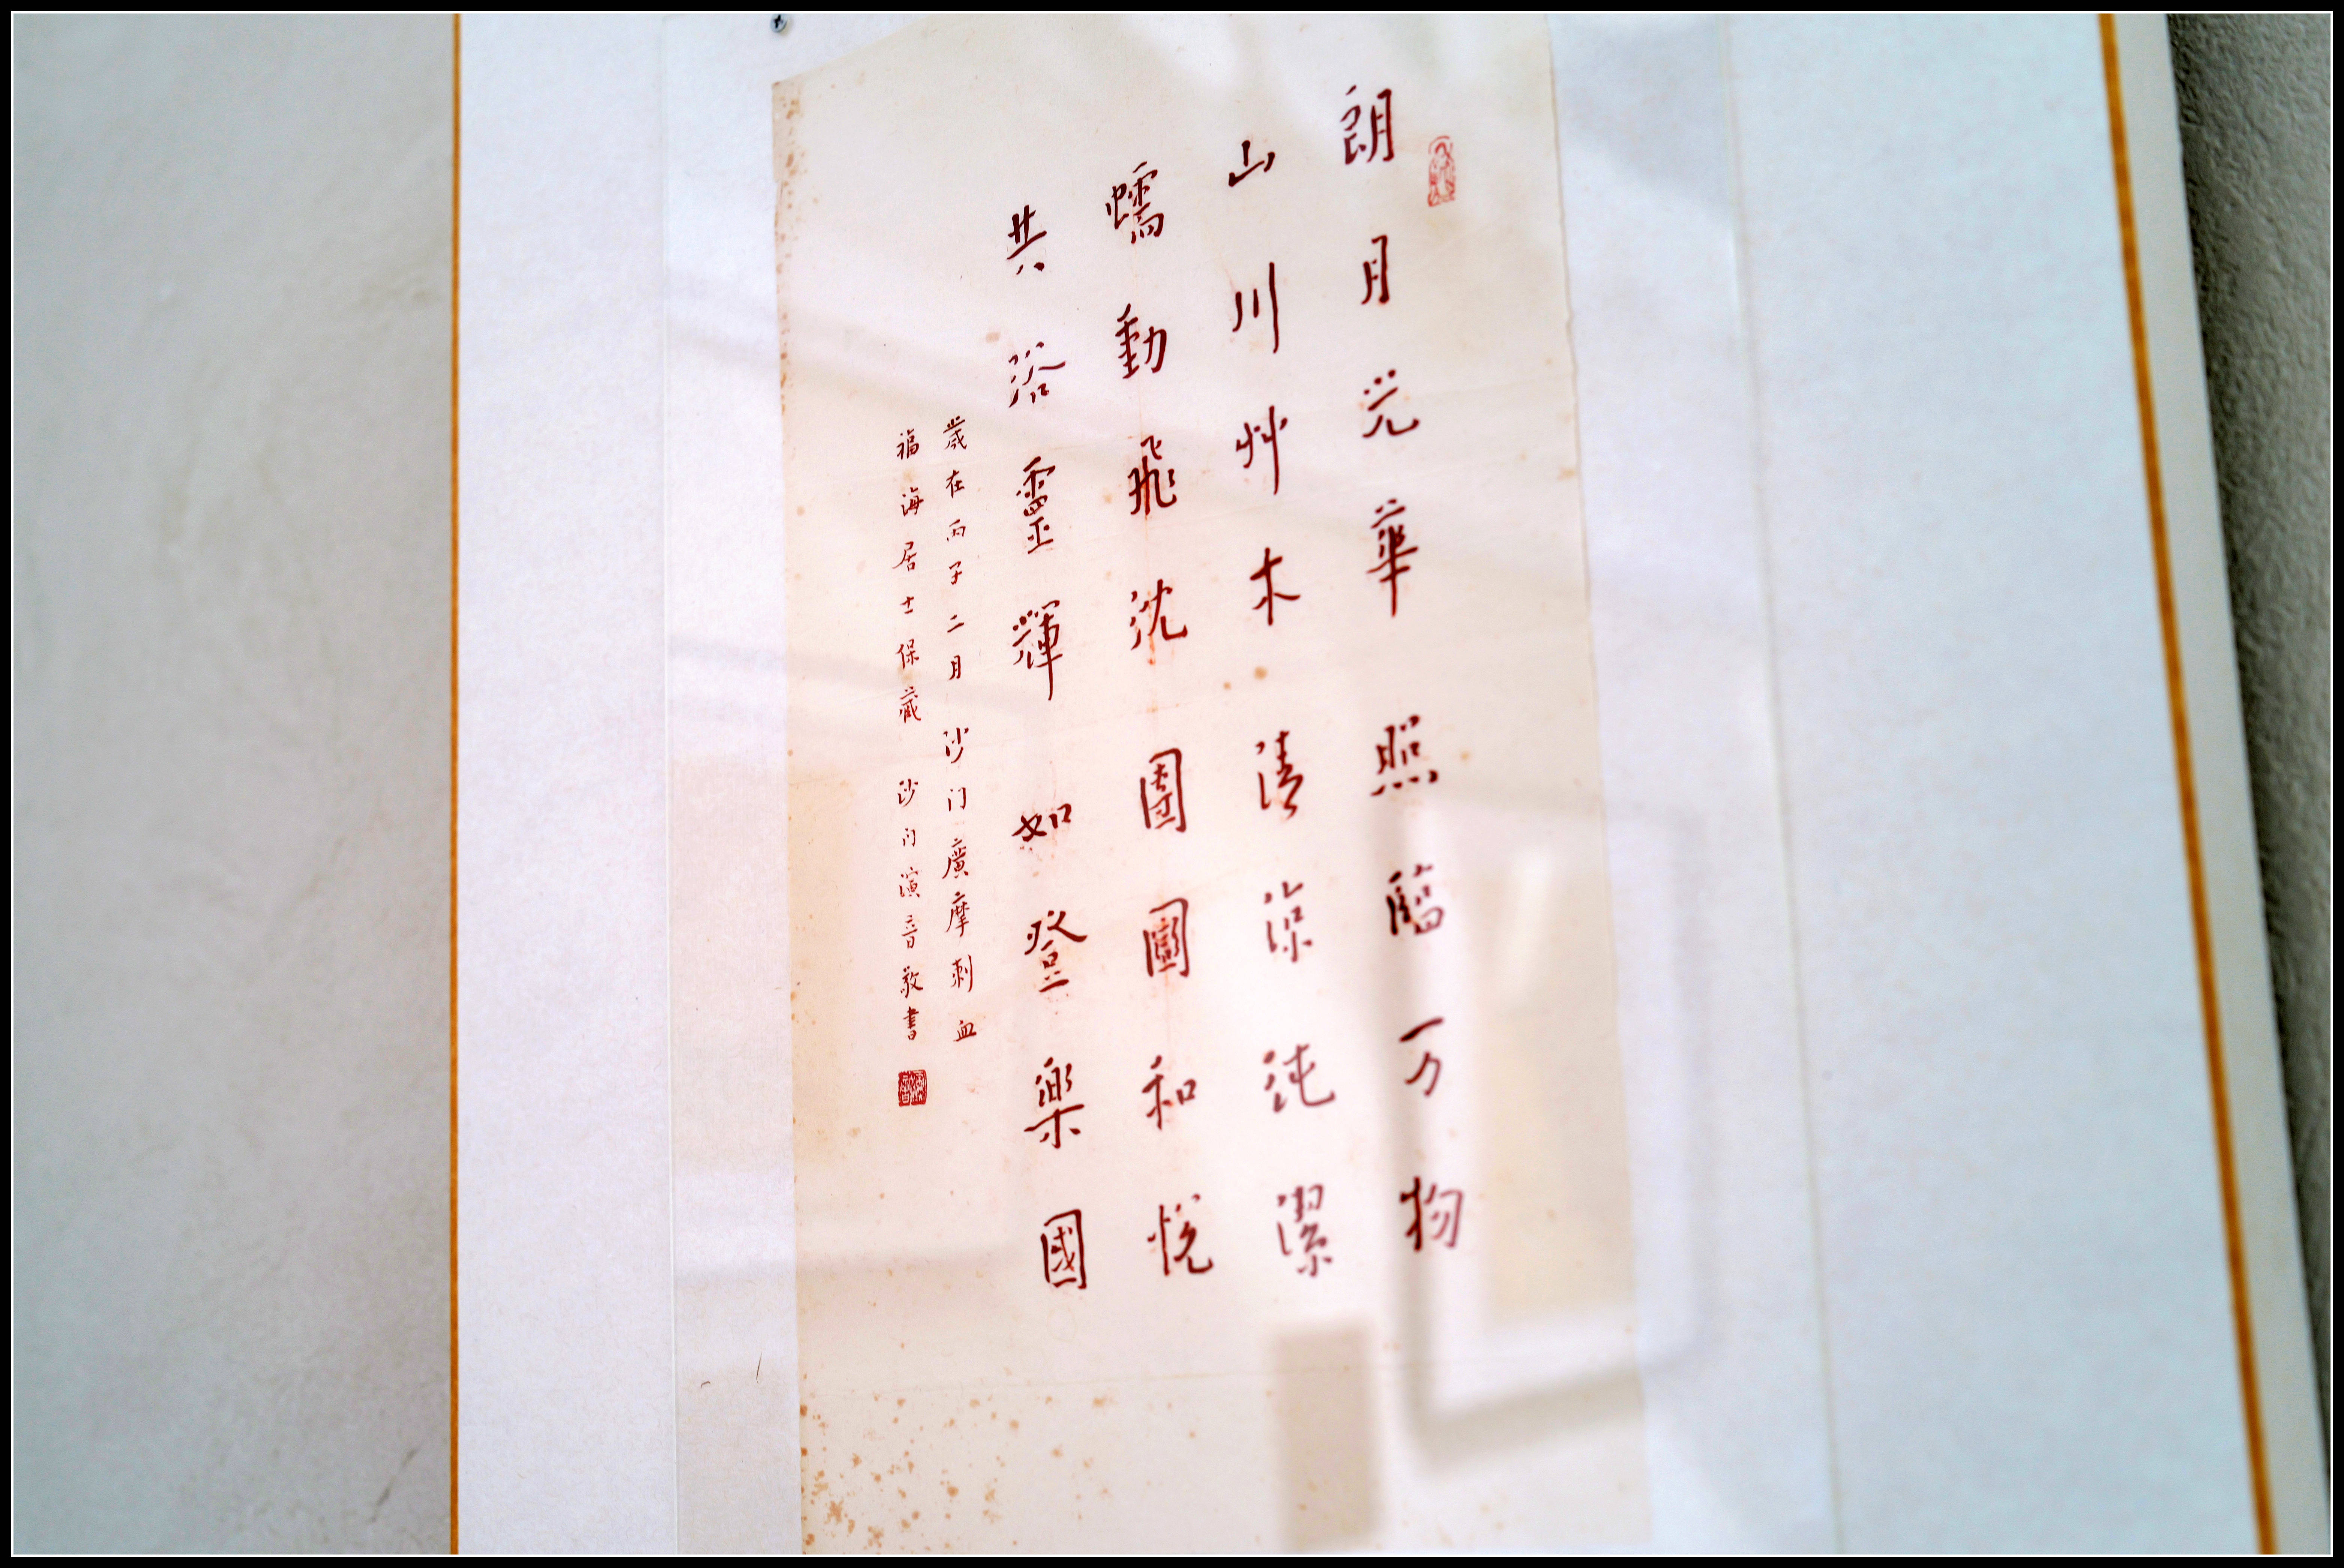 朗月光華 照臨万物
山川艸木 清涼純潔
蠕動飛沈 團圓和悅
共浴靈輝 如登樂國
歲在丙子二月 沙门廣摩刺血
福海居士保藏 沙门演音敬書